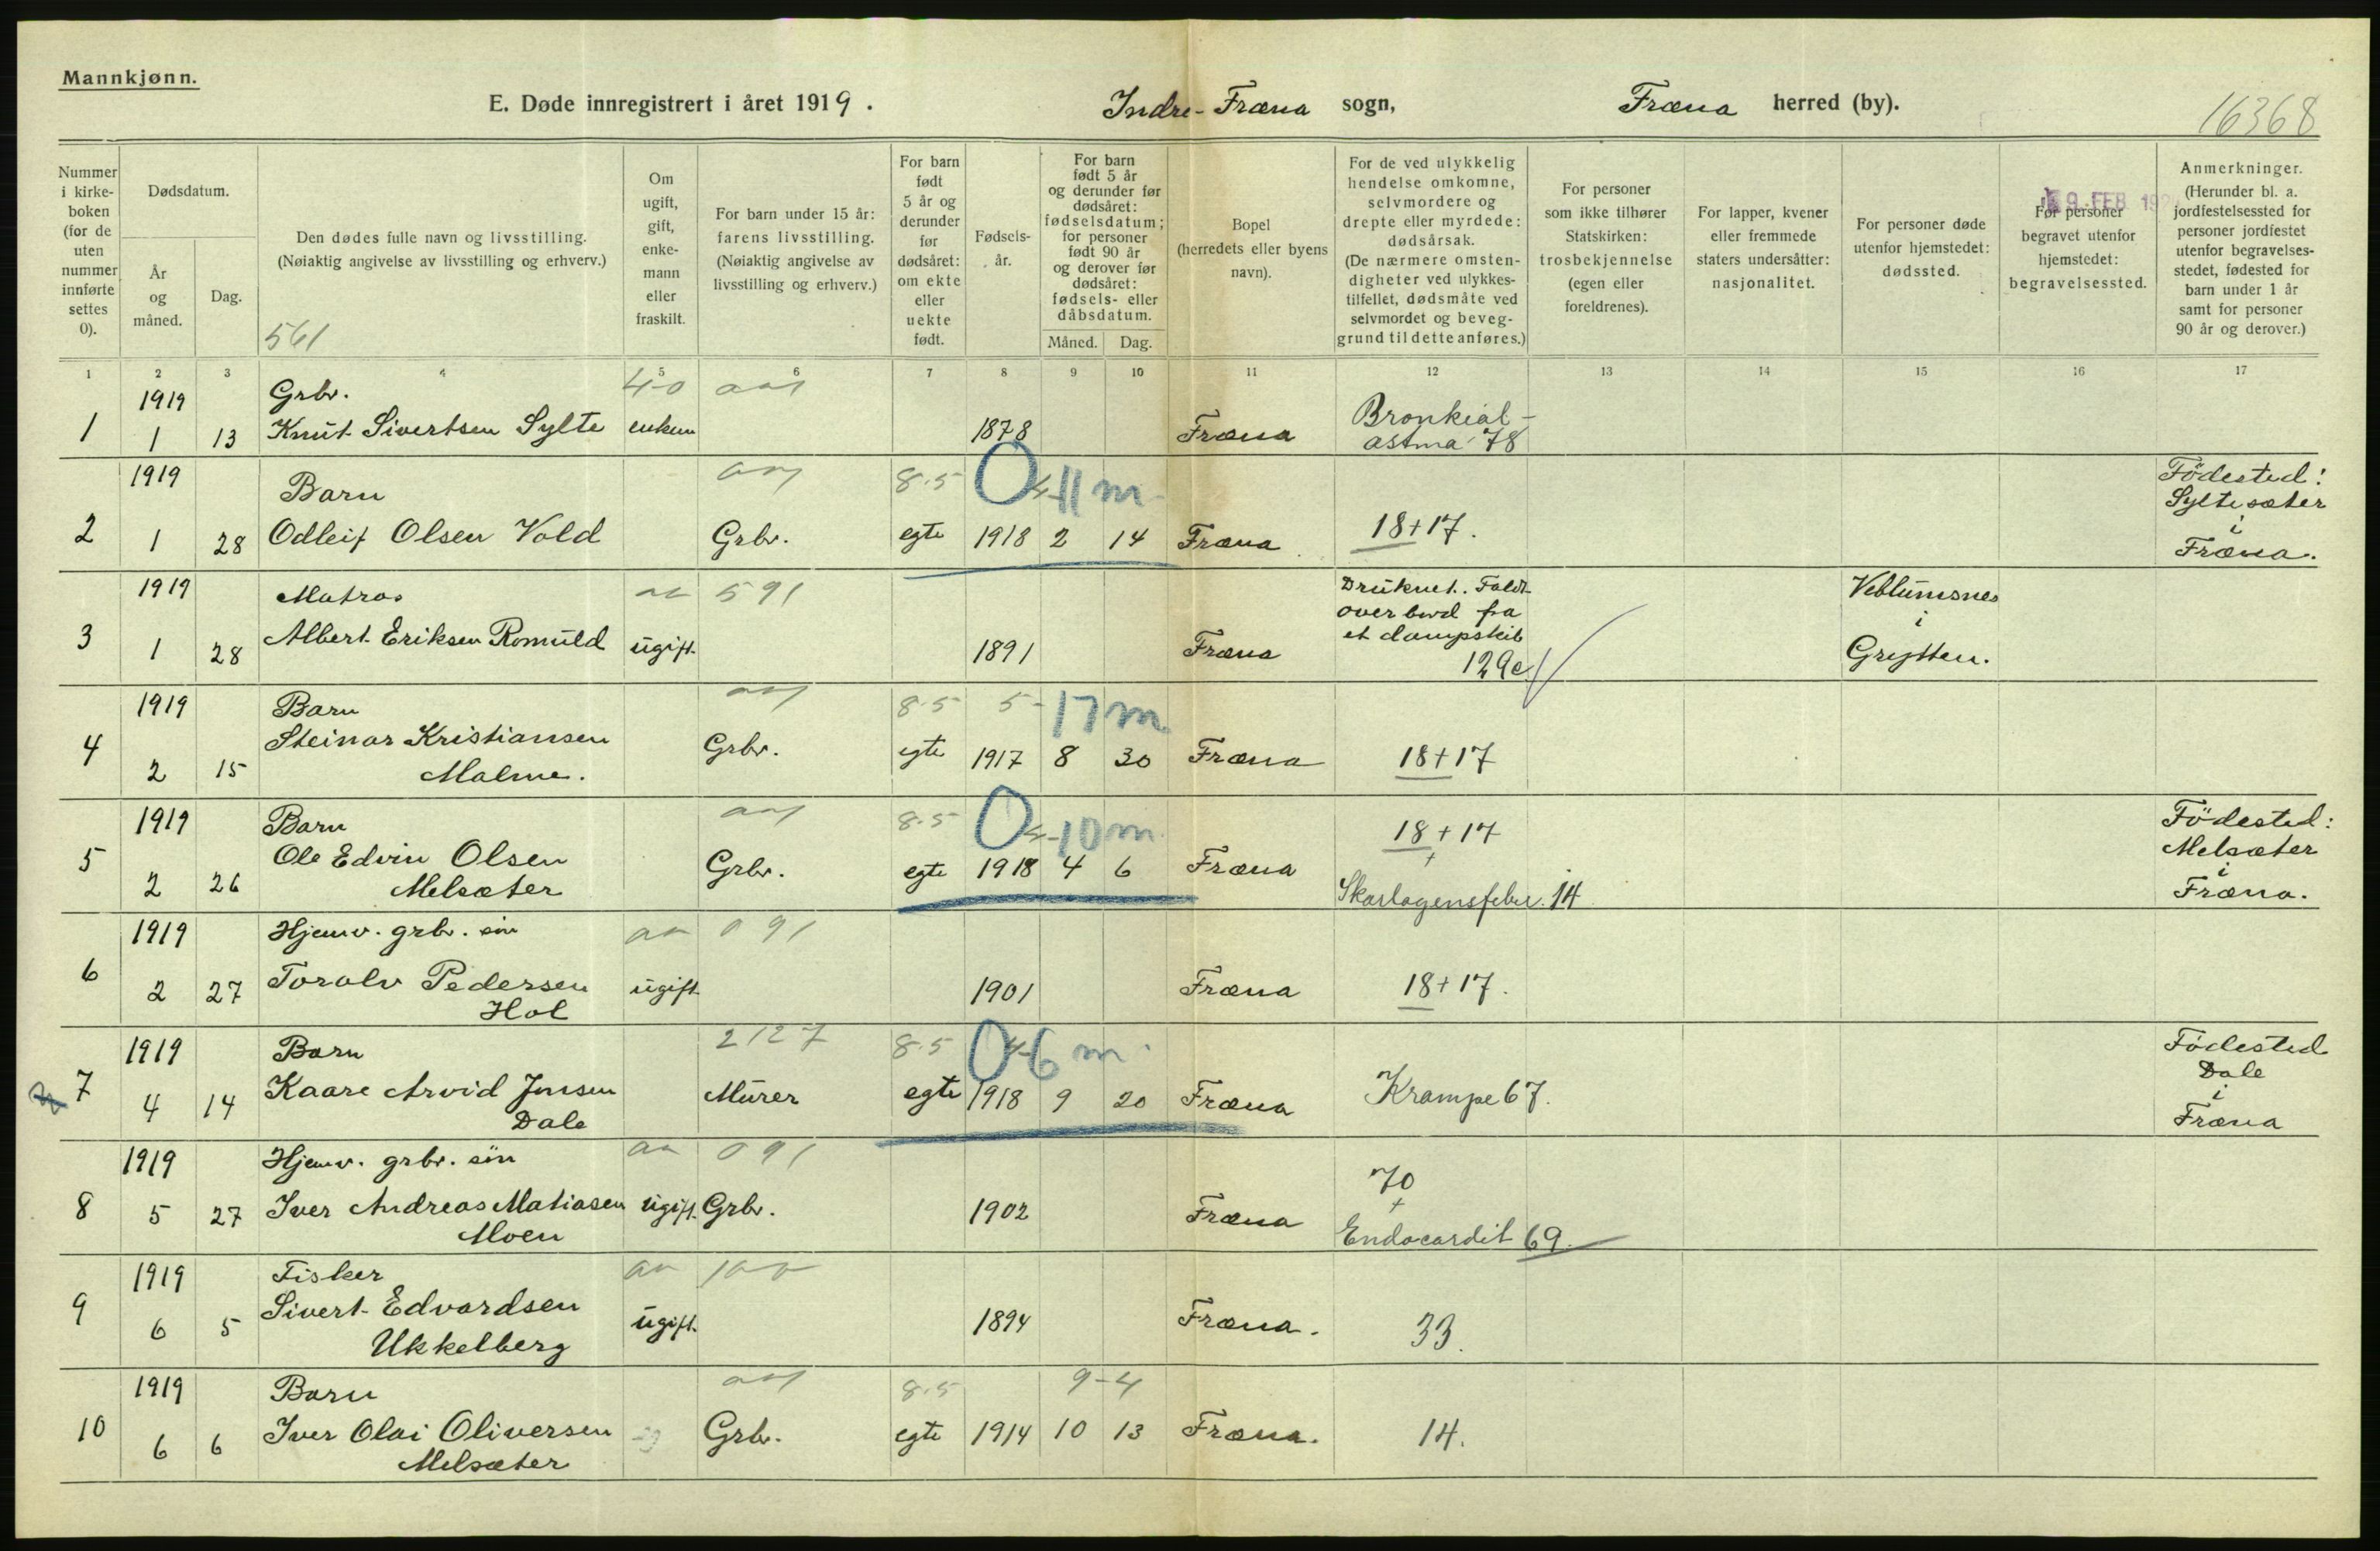 Mannkjønn.
E. Døde innregistrert i året 1919. Indre-Fræna sogn, Fræna herred (by).
16368
Nummer i kirke-boken (for de uten nummer innførte settes 0).
Dødsdatum.
År og måned.
Dag.
Den dødes fulle navn og livsstilling.
(Nøiaktig angivelse av livsstilling og erhverv.)
561
Om ugift, gift, enke-mann eller fraskilt.
For barn under 15 år: farens livsstilling. (Nøiaktig angivelse av livsstilling og erhverv.)
For barn født 5 år og derunder før dødsåret: om ekte eller uekte født.
Fødsels-år.
For barn født 5 år og derunder før dødsåret: fødselsdatum; for personer født 90 år og derover før dødsåret: fødsels- eller dåbsdatum.
Måned. Dag.
Bopel (herredets eller byens navn).
For de ved ulykkelig hendelse omkomne, selvmordere og drepte eller myrdede: dødsårsak. (De nærmere omsten-digheter ved ulykkes-tilfellet, dødsmåte ved selvmordet og beveg-grund til dette anføres.)
For personer som ikke tilhører Statskirken: trosbekjennelse (egen eller foreldrenes).
For lapper, kvener eller fremmede staters undersåtter: nasjonalitet.
For personer døde utenfor hjemstedet: dødssted.
9. FEB 192
For personer begravet utenfor hjemstedet: begravelsessted.
Anmerkninger. (Herunder bl. a. jordfestelsessted for personer jordfestet utenfor begravelses-stedet, fødested for barn under 1 år samt for personer 90 år og derover.)
1 2 3 4 5 6 7 8 9 10 11 12 13 14 15 16 17
1919 Grbr. 4-0
1 1 13 Knut Sivertsen Sylte enkem 1878 Fræna Bronkial-astma 78
1919 Barn 8.5 0 4-11 m Födested:
Syltesæter
2 1 28 Odleif Olsen Vold Grbr. egte 1918 2 14 Fræna. 18+17. i
Fræna.
1919 Matros 591 Druknet. Faldt Veblumsnes
over bord fra i
3 1 28 Albert Eriksen Romuld ugift 1891 Fræna et dampskib Grytten.
129c
1919 Barn 8.5 5- 17 m
4 2 15 Steinar Kristiansen Grbr. egte 1917 8 30 Fræna 18+17
Malme.
1919 Barn 8.5 0 4-10 m. 18+17 Födested:
5 2 26 Ole Edvin Olsen Grbr. egte 1918 4 6 Fræna + Melsæter
Melsæter Skarlagensfeber. 14 i
Fræna.
1919 Hjemv. grbr. sön 091
6 2 27 Toralv Pedersen ugift 1901 Fræna 18+17.
Hol
1919 Barn 2127 8.5 0 4-6 m. Födested
7 4 14 Kaare Arvid Jensen Murer egte 1918 9 20 Fræna Krampe 67. Dale
Dale i
Fræna
1919 Hjemv. grbr. sön 091 70
8 5 27 Iver Andreas Matiasen ugift. Grbr. 1902 Fræna +
Moen Endocardit 69.
1919 Fisker
9 6 5 Sivert Edvardsen ugift. 1894 Fræna. 33.
Ukkelberg
1919 Barn 8.5 9-4
10 6 6 Iver Olai Oliversen Grbr. egte 1914 10 13 Fræna. 14.
Melsæter